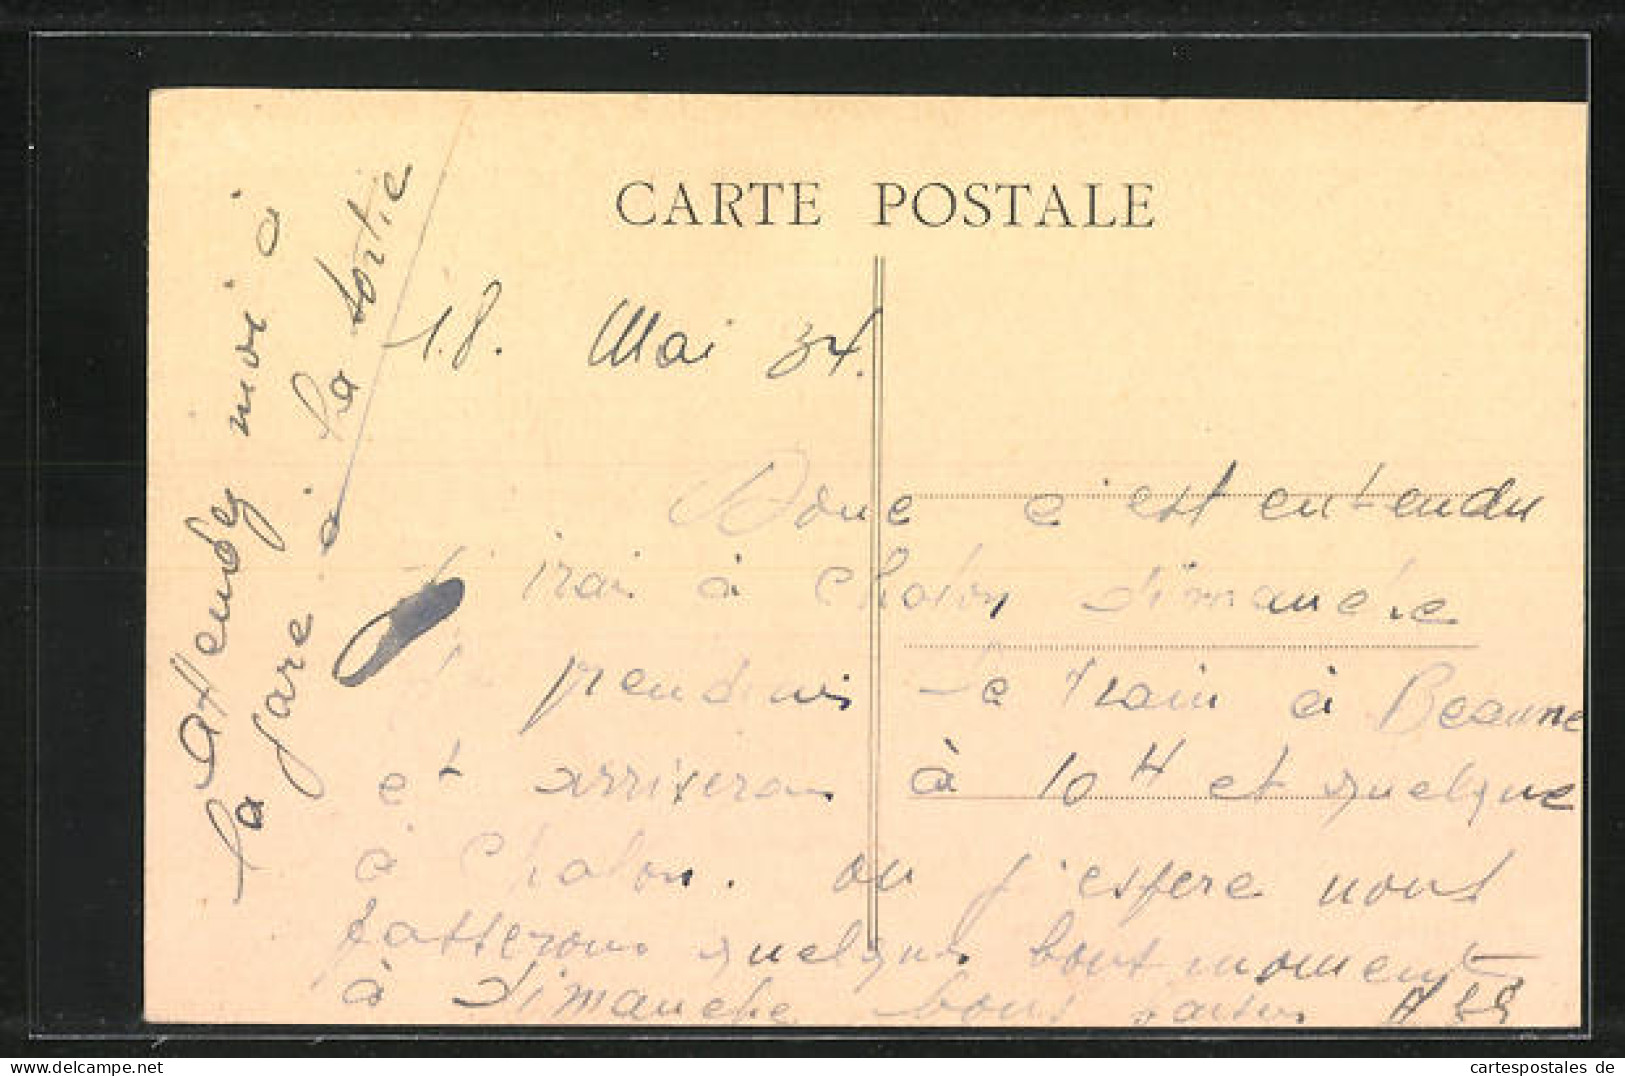 CARTE POSTALE
18. Mai 34.
Donc c'est entendu
j'irai à Chalon dimanche
prendrai le train à Beaune
et arriverai à 10 H et quelque
à Chalon. ou j'espere nous
passerons quelques bons moments
à dimanche bons
Attendez moi à
la gare à la sortie
cartespostales de